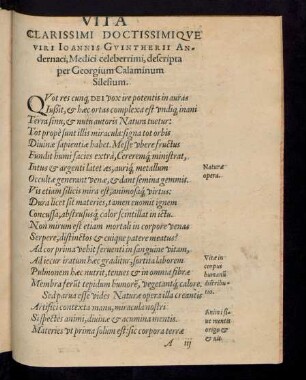 VITA
CLARISSIMI DOCTISSIMIQVE
VIRI IOANNIS GVINTHERII AN-
dernaci, Medici celeberrimi, descripta
per Georgium Calaminum
Silesium.
QVot res cunq; DEI vox ire potentis in auras
Iussit, & hæc ortas complexa est undiq; inani
Terra sinu, & nutu autoris Natura tuetur:
Tot propè sunt illis miracula: signa tot orbis
Diuinæ sapientiæ habet. Messe ubere fructus
Fundit humi facies extra, Cereremq; ministrat,
Intus & argenti latet æs, auriq; metallum
Occultæ generant uenæ, & dant semina gemmis.
Vis etiam silicis mira est, animosaq; virtus:
Dura licet sit materies, tamen euomit ignem
Concussa, abstrususq; calor scintillat in ictu.
Non mirum est etiam mortali in corpore venas
Serpere, distinctos & cuique patere meatus?
Ad cor prima vehit feruentem in sanguine vitam,
Ad iecur iratum hæc graditur, sortita laborem
Pulmonem hæc nutrit, tenues & in omnia fibræ
Membra ferūt tepidum humorē, vegetantq́; calore.
Sed parua esse vides Naturæ opera illa creantis
Artifici contexta manu, miracula nostri
Si spectes animi, diuinæ & acumina mentis.
Materies ut prima solum est: sic corpora terræ
Naturæ
opera.
Vitæ in
corpus
humanū
distribu-
tio.
Animi si-
ue mentis
origo &
A iij